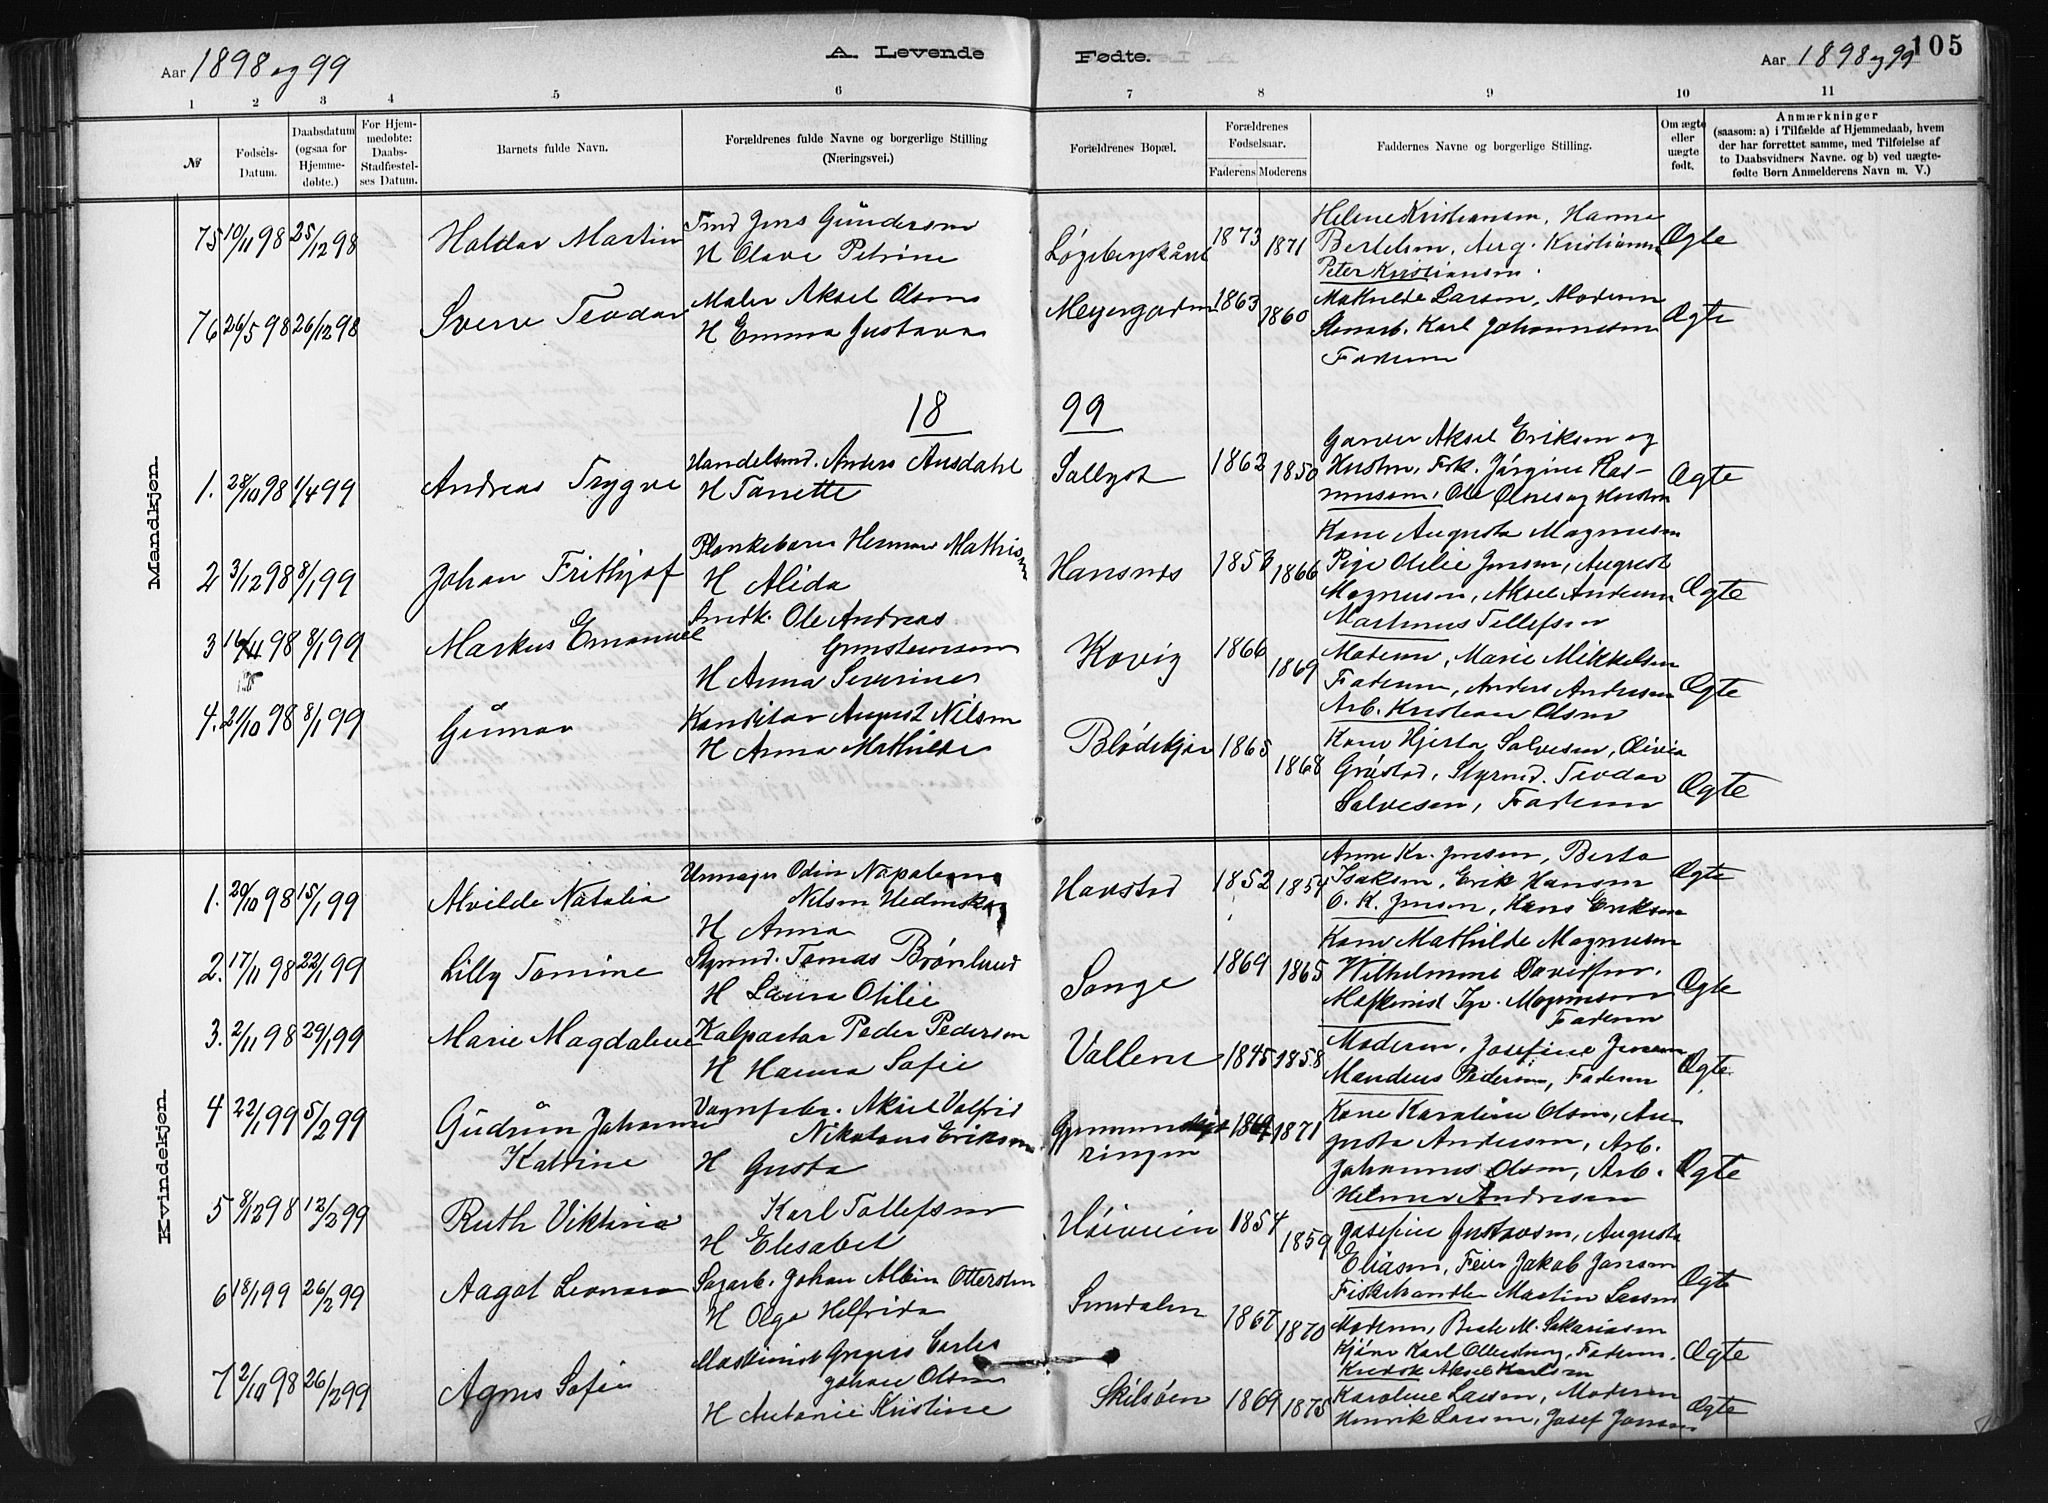 Aar 1898 og 99
A. Levende
Fødte.
Aar 1898 og 99
105
1 2 3 4 5 6 7 8 9 10 11
№
Fødsels-
Datum.
Daabsdatum
(ogsaa for
Hjemme-
døbte.)
For Hjem-
medøbte:
Daabs-
Stadfæstel-
ses Datum.
Barnets fulde Navn.
Forældrenes fulde Navne og borgerlige Stilling
(Næringsvei.)
Forældrenes Bopæl.
Forældrenes
Fødselsaar.
Faderens Moderens
Faddernes Navne og borgerlige Stilling.
Om ægte
eller
uægte
født.
Anmærkninger
(saasom: a) i Tilfælde af Hjemmedaab, hvem
der har forrettet samme, med Tilføielse af
to Daabsvidners Navne. og b) ved uægte-
fødte Børn Anmelderens Navn m. V.)
Mandkjøn.
75 10/11 98 25/12 98 Haldor Martin
Jens Gundersen
H Olave Petrine
1873 1871
Helene Kristiansen, Hanna
Bertelsen, Kristiansen
Peter Kristiansen.
Ægte
76 26/5 98 26/12 98 Sverre Teodor
Maler Aksel Olsen
H Emma Gustava
1863 1860
Mathilde Larsen, Moderen
Karl Johannesen
Faderen
Ægte
18 99
1. 28/10 98 1/4 99 Andreas Trygve
Handelsmd. Anders Ausdahl
H Tanette
1862 1850
Garver Aksel Eriksen og
Hustru, Frk. Jørgine Ras-
mussen, Ole og Hustru
Ægte
2 3/12 98 8/1 99 Johan Frithjof
Plankebærer Herman Mathisen
H Alida
Hansnes 1853 1866
Kone Augusta Magnusen
Pige Otilie Jensen, August
Magnusen, Aksel Andersen
Martinus Tellefsen
Ægte
3 16/11 98 8/1 99 Markus Emanuel
Smdk. Ole Andreas
Gunstensen
H Anna Severine
Kovig 1866 1869
Moderen, Marie Mikkelsen
Faderen, Anders Andersen
Arb. Kristian Olsen
Ægte
4. 21/10 98 8/1 99 Gunnar
Konditor August Nilsen
H Anna Mathilde
Blødekjær 1865 1868
Kone Hjerta Salvesen, Olivia
Grøstad, Styrmd. Teodor
Salvesen, Faderen
Ægte
Kvindekjøn.
1. 20/10 98 15/1 99 Alvilde Natalia
Urmager Odin Napoleon
Nilsen
H Anna
Havstad 1852 1854
Anne Kr. Jensen, Berta
Isaksen, Erik Hansen
O. K. Jensen, Hans Eriksen
Ægte
2. 17/11 98 22/1 99 Lilly Tomine
Styrmd. Tomas Brønlund
H Laura Otilie
Songe 1869 1865
Kone Mathilde Magnusen
Wilhelmine Davidsen,
Maskinist Magnusen
Faderen
Ægte
3. 2/11 98 29/1 99 Marie Magdalene
Kolportør Peder Pedersen
H Hanna Sofie
Vollene 1845 1858
Moderen, Josefine Jensen
Mandeus Pedersen, Faderen
Ægte
4 22/1 99 5/2 99 Gudrun Johanne
Katrine
Vognfabr. Aksel Valfrid
Nikolaus Eriksen
H Gusta
1871
Kone Karoline Olsen, Au-
gusta Andersen, Arb.
Johannes Olsen, Arb.
Helmer Andresen
Ægte
5 8/12 98 12/2 99 Ruth Viktoria
Karl Tollefsen
H Elisabet
Høiveien 1854 1859
Josefine Gustavsen, Augusta
Eliasen, Feier Jakob Jansen
Fiskehandler Martin Larsen
Ægte
6 18/1 99 26/2 99 Aagot Leonora
Sagarb. Johan Albin Ottersten
H Olga Helfrida
Smedalen 1867 1870
Moderen, Beate M. Sakariasen
Karl Faderen,
Aksel Karlsen
Ægte
7 2/10 98 26/2 99 Agnes Sofie
Maskinist Gregers Carles
Johan Olsen
H Antonie Kristine
Skilsøen 1869 1875
Karoline Larsen, Moderen
Henrik Larsen, Josef Jansen
Ægte